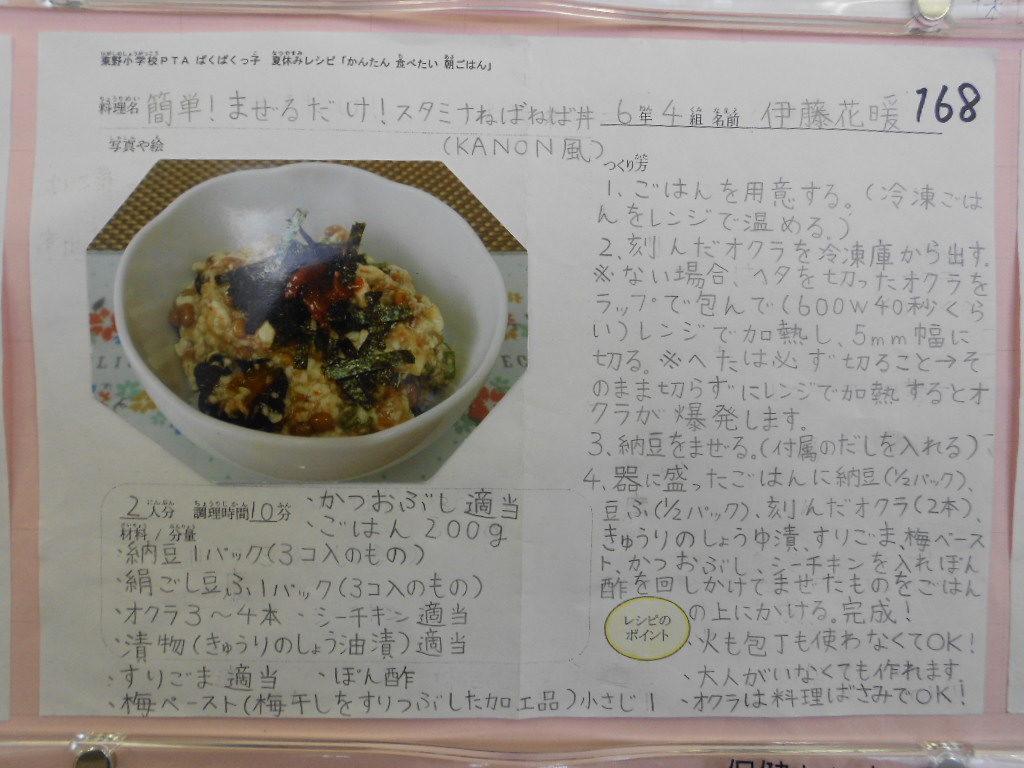 東野小学校PTA ぱくぱくっ子 夏休みレシピ「かんたん 食べたい 朝ごはん」
料理名 簡単！まぜるだけ！スタミナねばねば丼 6年4組 名前 伊藤花暖 168
(KANON風)
写真や絵
つくり方
1、ごはんを用意する。(冷凍ごは
んをレンジで温める。)
2、刻んだオクラを冷凍庫から出す。
※ない場合、ヘタを切ったオクラを
ラップで包んで(600W40秒くら
い)レンジで加熱し、5mm幅に
切る。※へたは必ず切ること→そ
のまま切らずにレンジで加熱するとオ
クラが爆発します。
3、納豆をまぜる。(付属のだしを入れる)
4、器に盛ったごはんに納豆(½パック)、
豆ふ(½パック)、刻んだオクラ(2本)、
きゅうりのしょうゆ漬、すりごま、梅ペース
ト、かつおぶし、シーチキンを入れぽん
酢を回しかけてまぜたものをごはん
の上にかける。完成！
レシピの
ポイント
・火も包丁も使わなくてOK！
・大人がいなくても作れます。
・オクラは料理ばさみでOK！
2人分 調理時間10分
・かつおぶし適当
材料/分量
・ごはん200g
・納豆1パック(3コ入のもの)
・絹ごし豆ふ1パック(3コ入のもの)
・オクラ3〜4本 ・シーチキン適当
・漬物(きゅうりのしょう油漬)適当
・すりごま適当 ・ぽん酢
・梅ペースト(梅干しをすりつぶした加工品)小さじ1